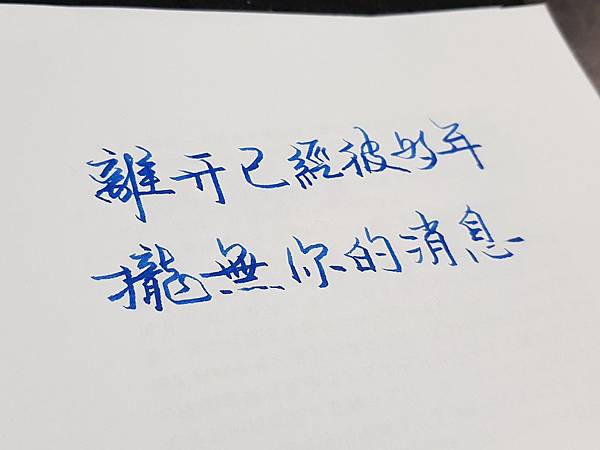 離开已經彼多年
攏無你的消息